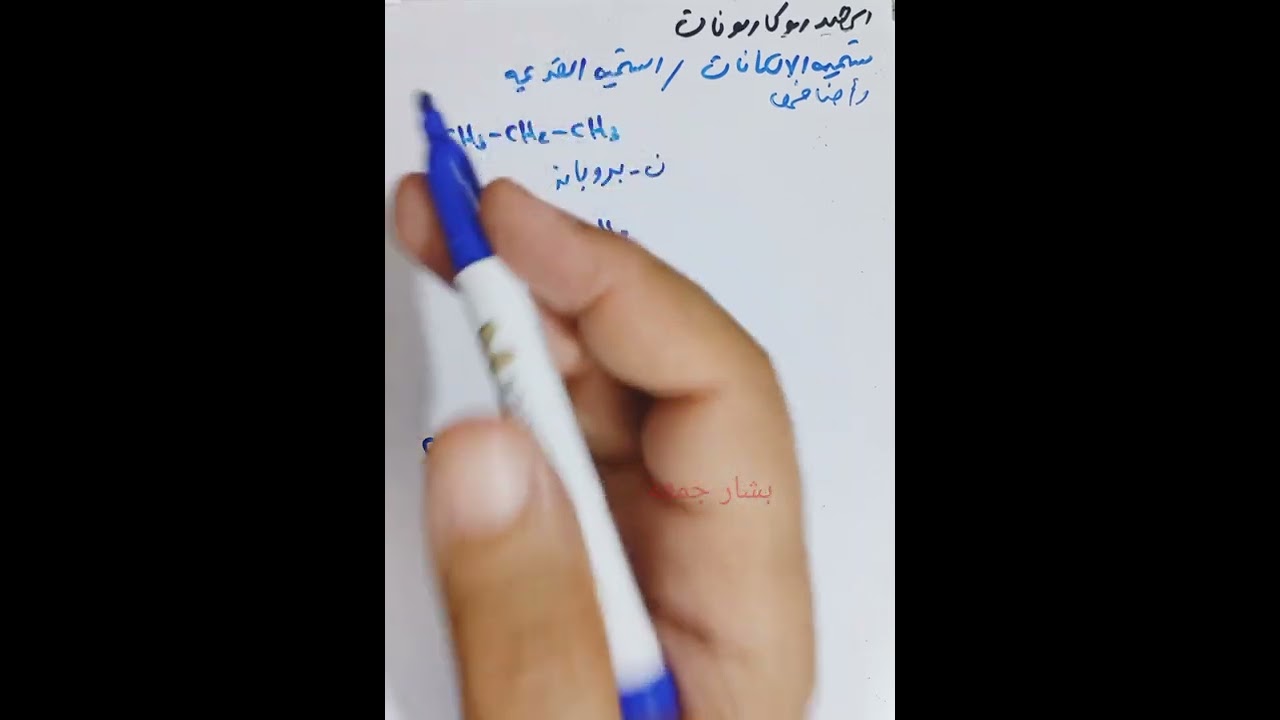 الهيدروكاربونات
تسمية الالكانات / التسمية القديمة
CH3-CH2-CH3
ن-بروبان
بشار